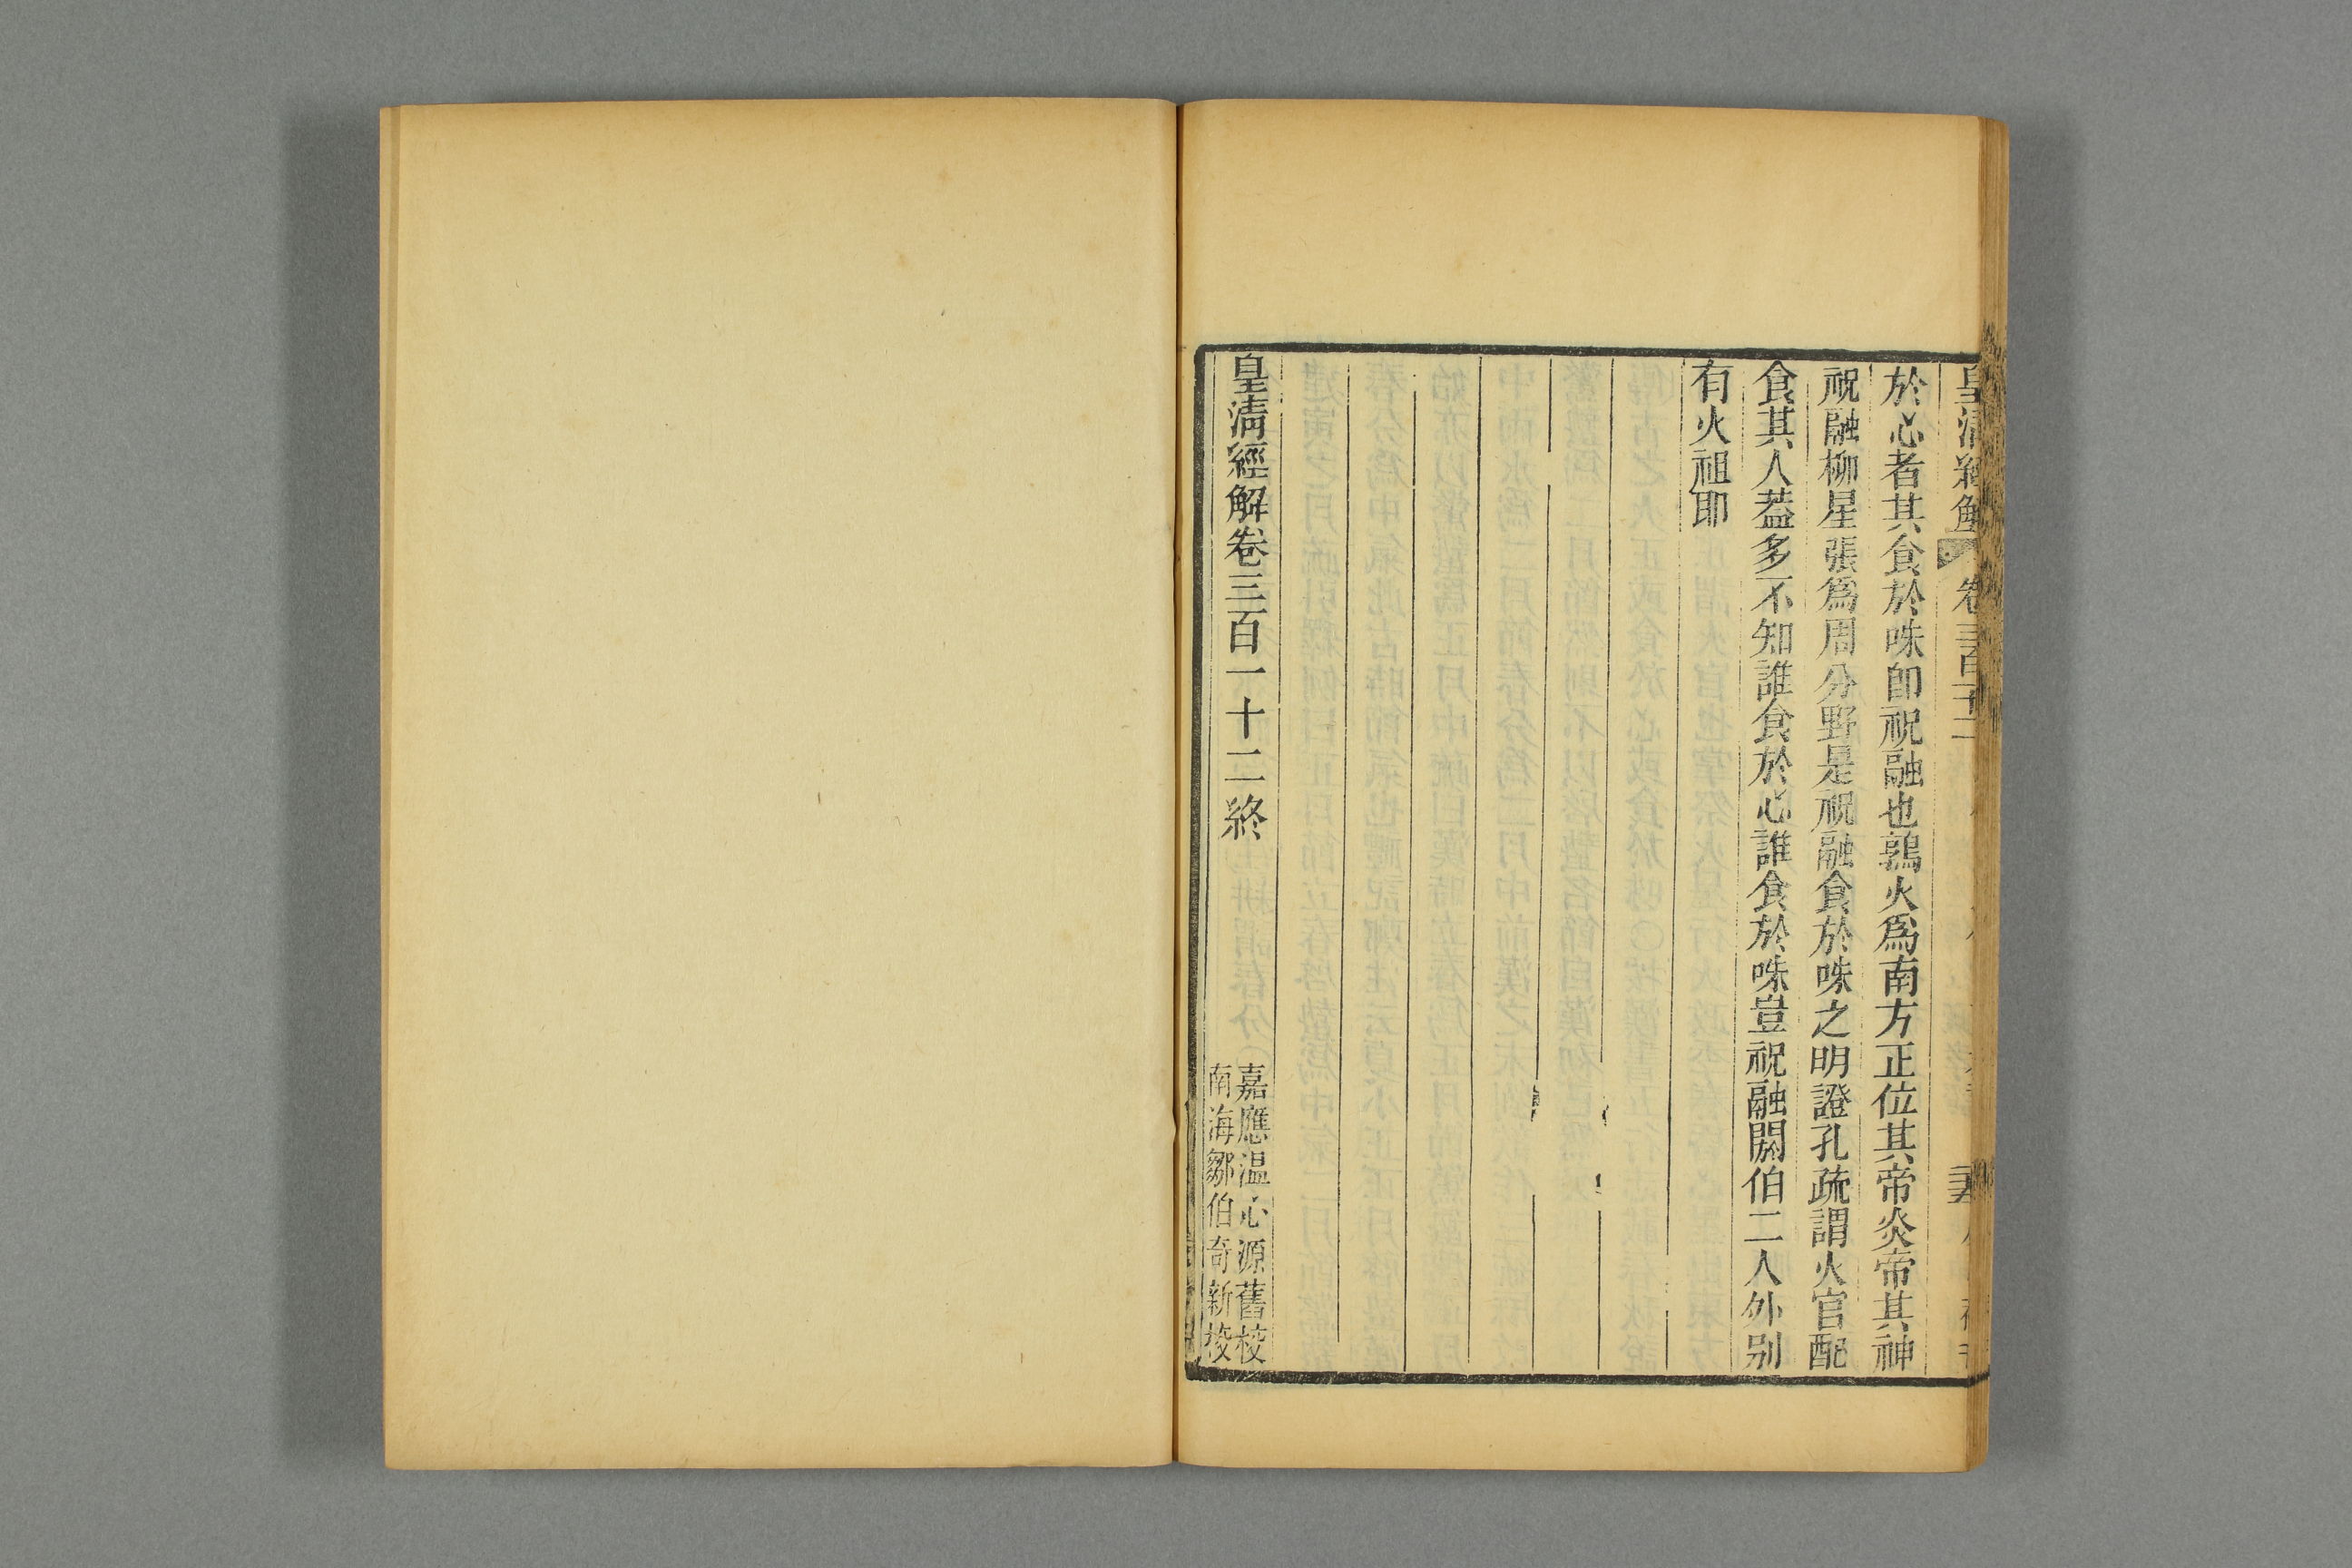 皇清經解 卷三百十二
於心者其食於咮卽祝融也鶉火爲南方正位其帝炎帝其神
祝融柳星張爲周分野是祝融食於咮之明證孔疏謂火官配
食其人蓋多不知誰食於心誰食於咮豈祝融閼伯二人外别
有火祖耶
皇清經解卷三百一十二終
嘉應温心源舊校
南海鄒伯奇新校